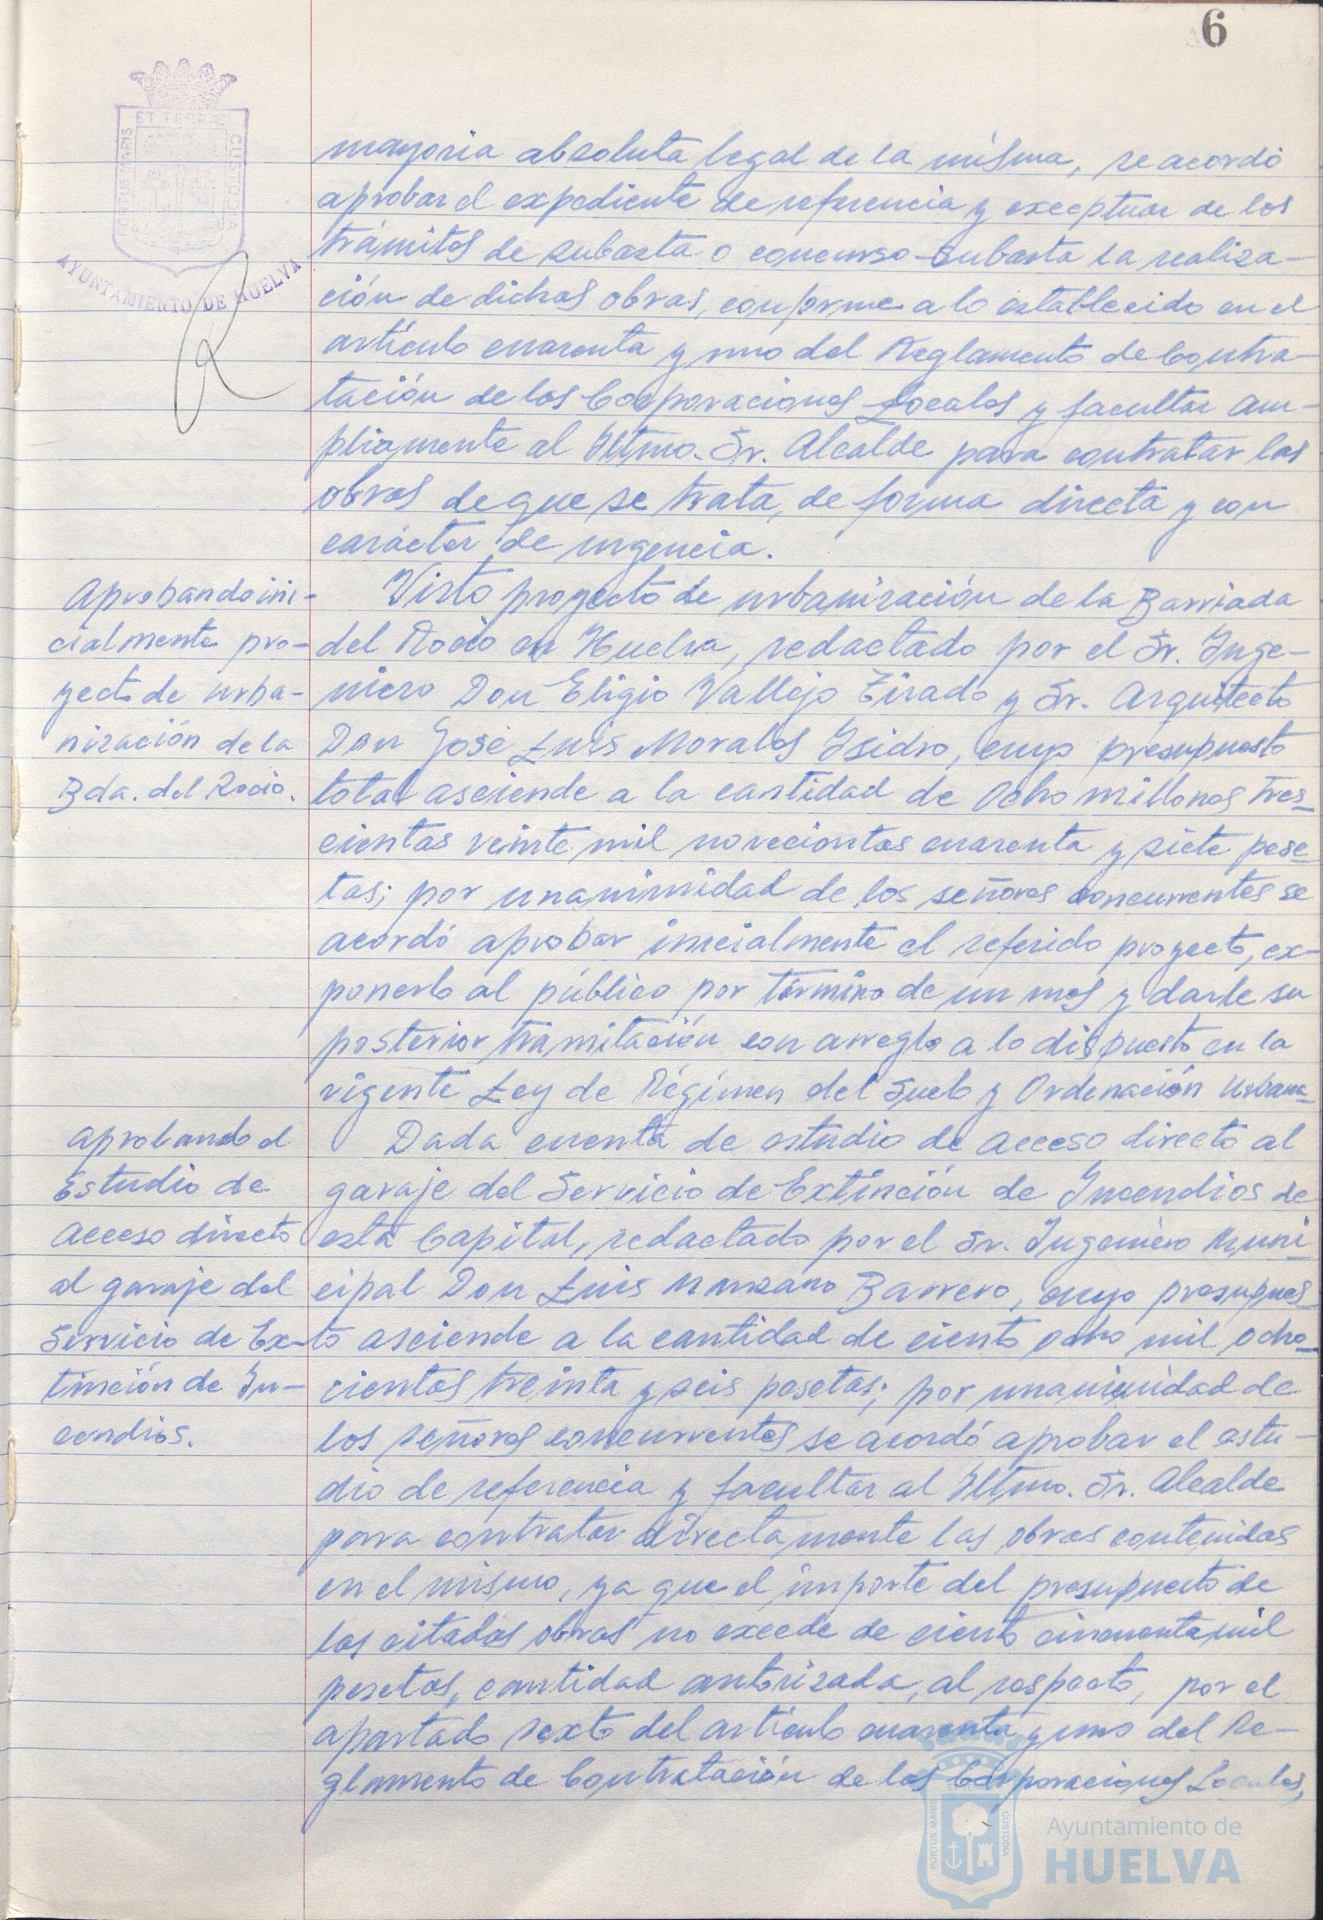 6
PORTUS MARIS ET TERRAE CUSTODIA
AYUNTAMIENTO DE HUELVA
mayoria absoluta legal de la misma, se acordó
aprobar el expediente de referencia y exceptuar de los
trámites de subasta o concurso-subasta la realiza-
ción de dichas obras, conforme a lo establecido en el
artículo cuarenta y uno del Reglamento de Contra-
tación de las Corporaciones Locales y facultar am-
pliamente al Iltmo. Sr. Alcalde para contratar las
obras de que se trata, de forma directa y con
carácter de urgencia.
Aprobando ini-
cialmente pro-
yecto de urba-
nización de la
Bda. del Rocio.
Visto proyecto de urbanización de la Barriada
del Rocio en Huelva, redactado por el Sr. Inge-
niero Don Eligio Vallejo Tirado y Sr. Arquitecto
Don José Luis Morales Isidro, cuyo presupuesto
total asciende a la cantidad de Ocho millones tres-
cientas veinte mil novecientas cuarenta y siete pese-
tas; por unanimidad de los señores concurrentes se
acordó aprobar inicialmente el referido proyecto, ex-
ponerlo al público por término de un mes y darle su
posterior tramitación con arreglo a lo dispuesto en la
vigente Ley de Régimen del Suelo y Ordenación Urbana-
Aprobando el
Estudio de
Acceso directo
al garaje del
Servicio de Ex-
tinción de In-
cendios.
Dada cuenta de estudio de acceso directo al
garaje del Servicio de Extinción de Incendios de
esta Capital, redactado por el Sr. Ingeniero Muni-
cipal Don Luis Manzano Barrero, cuyo presupues-
to asciende a la cantidad de ciento ocho mil ocho-
cientas treinta y seis pesetas; por unanimidad de
los señores concurrentes se acordó aprobar el estu-
dio de referencia y facultar al Iltmo. Sr. Alcalde
para contratar directamente las obras contenidas
en el mismo, ya que el importe del presupuesto de
las citadas obras no excede de ciento cincuenta mil
pesetas, cantidad autorizada, al respecto, por el
apartado sexto del artículo cuarenta y uno del Re-
glamento de Contratación de las Corporaciones Locales,
PORTUS MARIS CUSTODIA
Ayuntamiento de
HUELVA